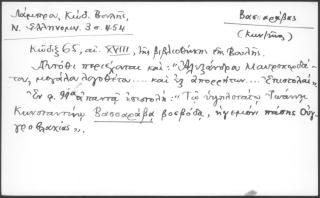 Λάμπρου, Κώδ. Βουλῆς,
Ν. Ἑλληνομν. 3 σ. 454
Βασσαράβας
(Κων/τῖνος)
Κῶδιξ 65, αἰ. XVIII, τῆς βιβλιοθήκης τῆς Βουλῆς.
Αὐτόθι περιέχονται καὶ: "Ἀλεξάνδρου Μαυροκορδά-
του, μεγάλου λογοθέτου.... καὶ ἐξ ἀπορρήτων... Ἐπιστολαὶ"
Ἐν φ. ἀπαντᾷ ἐπιστολὴ: "Τῷ ὑψηλοτάτῳ Ἰωάννῃ
Κωνσταντίνῳ Βασσαράβᾳ βοεβόδᾳ, ἡγεμόνι πάσης Οὐγ-
γροβλαχίας".